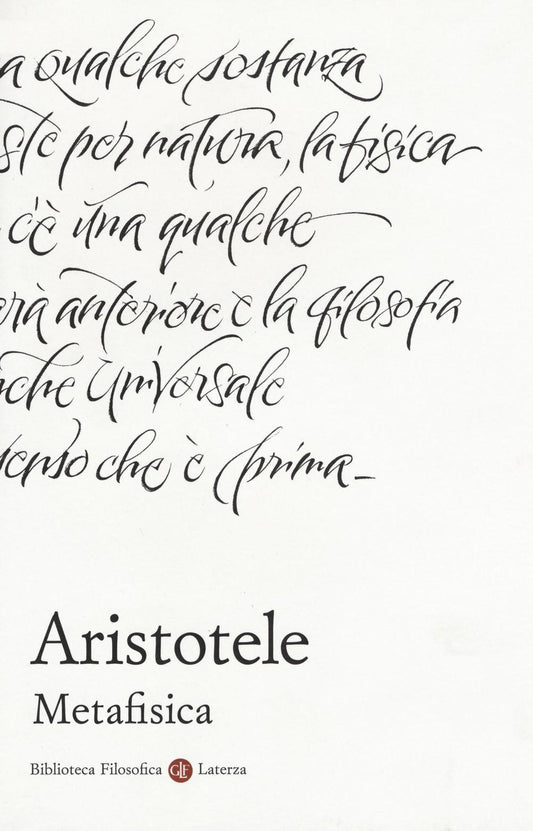 a qualche sostanza
ste per natura, la fisica
c'è una qualche
erà anteriore è la filosofia
nche universale
senso che è prima_
Aristotele
Metafisica
Biblioteca Filosofica GLF Laterza